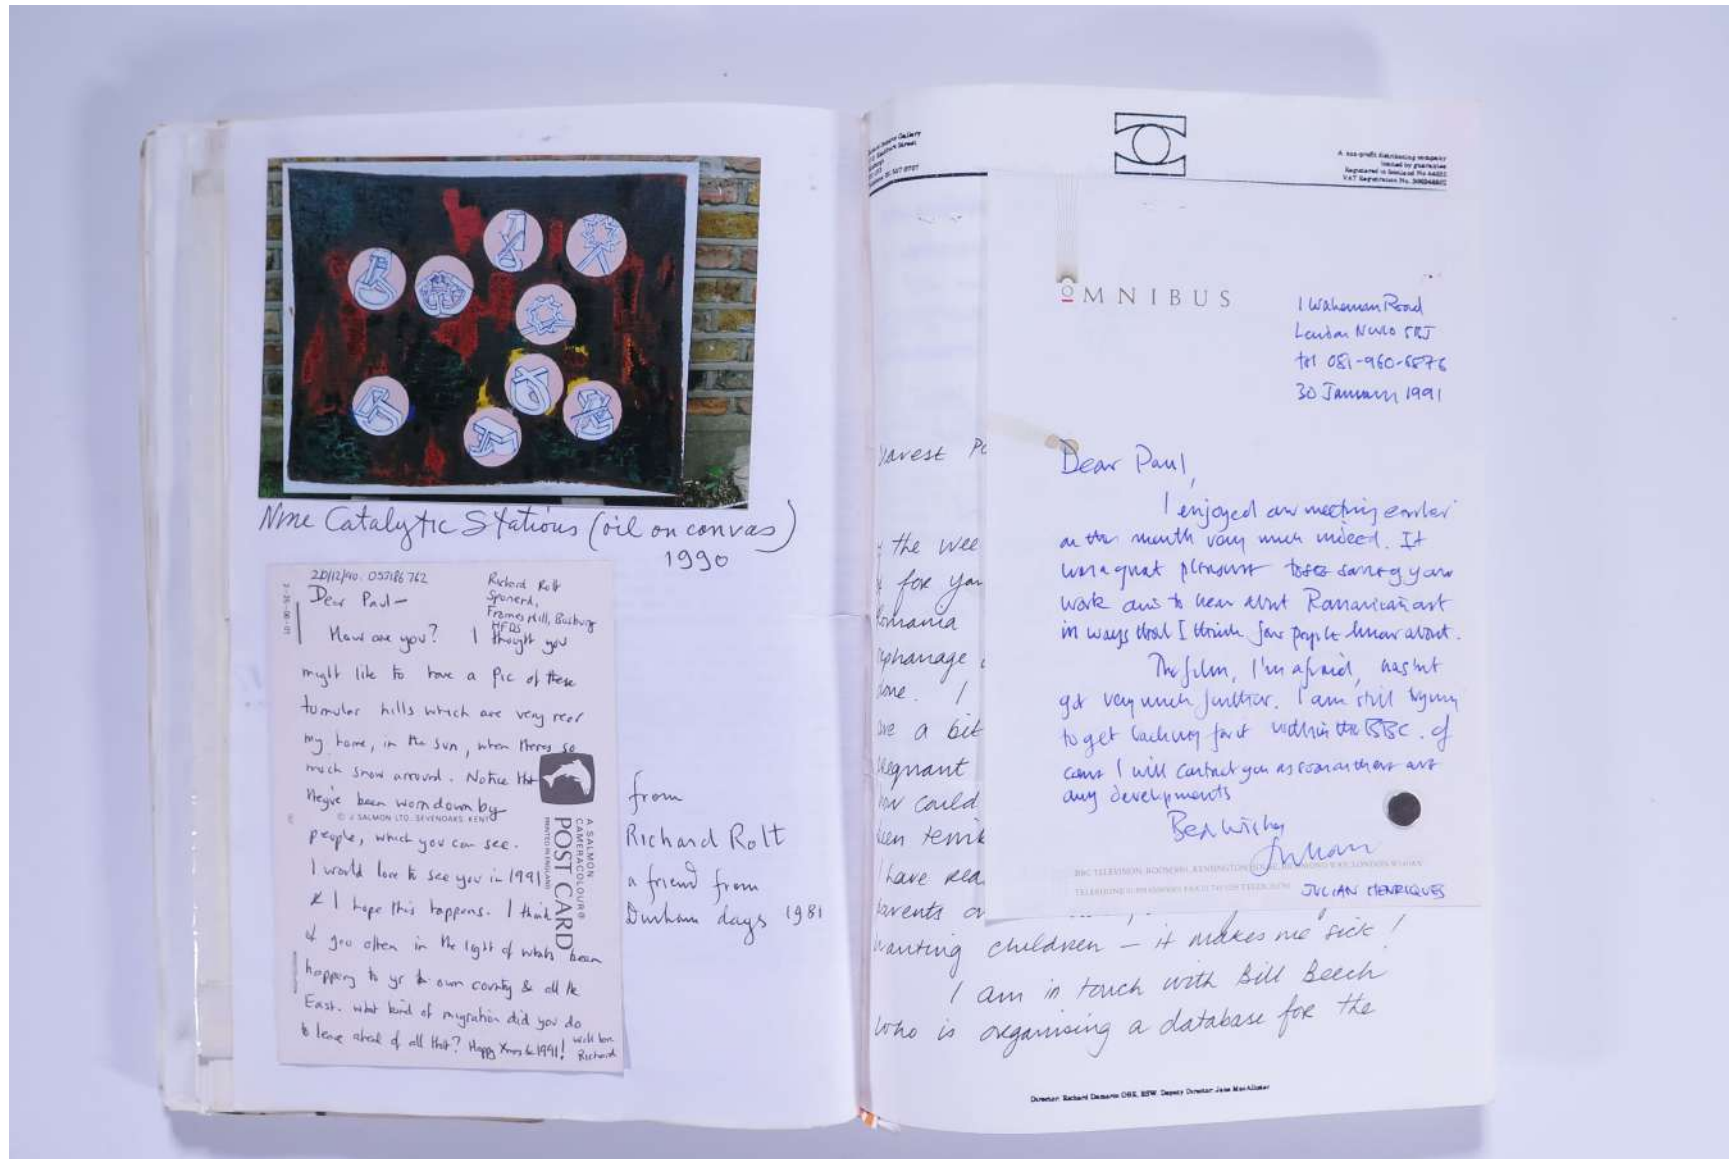 Nine Catalytic Stations (oil on canvas)
1990
20/12/90. 053186 762
Richard Rolt
Dear Paul –
How are you? I thought you
might like to have a pic of these
tumular hills which are very near
my home, in the sun, when theres so
much snow around. Notice that
they've been worn down by
© J SALMON LTD. SEVENOAKS. KENT
people, which you can see.
I would love to see you in 1991
& I hope this happens. I think
of you often in the light of whats been
happening to yr own country & all the
East. What kind of migration did you do
to leave ahead of all that? Happy Xmas & 1991!
Richard
A SALMON
CAMERACOLOUR®
POST CARD
PRINTED IN ENGLAND
from
Richard Rolt
a friend from
Durham days 1981
Gallery
A non-profit distributing company
limited by guarantee
Registered in Scotland No
VAT Registration No.
OMNIBUS
1 Wakeman Road
London NW10 5RJ
tel 081-960-6576
30 January 1991
Dear Paul,
I enjoyed our meeting earlier
in the month very much indeed. It
was a great pleasure seeing your
work and to hear about Romanian art
in ways that I think few people know about.
The film, I'm afraid, hasn't
got very much further. I am still trying
to get backing for it within the BBC. Of
course I will contact you as soon as there are
any developments
Best Wishes
Julian
BBC TELEVISION, KENSINGTON HOUSE, LONDON
JULIAN HENRIQUES
the wee
for you
Romania
orphanage
done. I
a bit
pregnant
could
been
I have
parents
wanting children – it makes me sick!
I am in touch with Bill Beech
who is organising a database for the
Director: Richard Demarco OBE, RSW. Deputy Director: Jane MacAllister